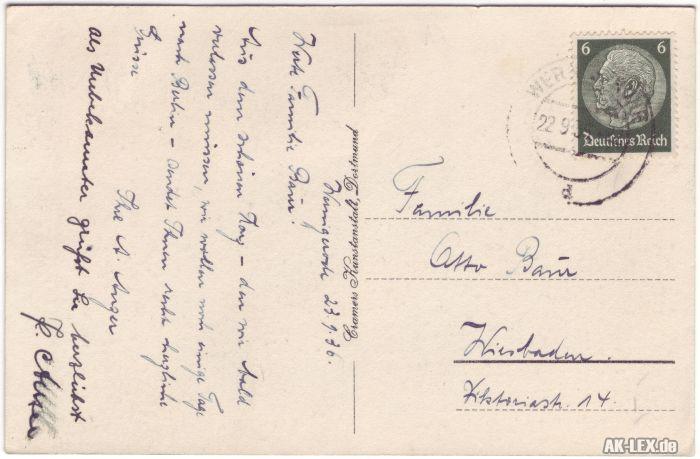 Wernigerode 23.9.36.
Werte Familie Baur!
Aus dem schönen Harz – den wir bald
verlassen müssen, wir wollen noch einige Tage
nach Berlin – sendet Ihnen recht herzliche
Grüsse
Ihre A. Anger
Als Unbekannter grüßt Sie herzlichst
Cramers Kunstanstalt, Dortmund
6 6
Deutsches Reich
WER
22.9.3
a
Familie
Otto Baur
Wiesbaden.
Viktoriastr. 14.
AK-LEX.de